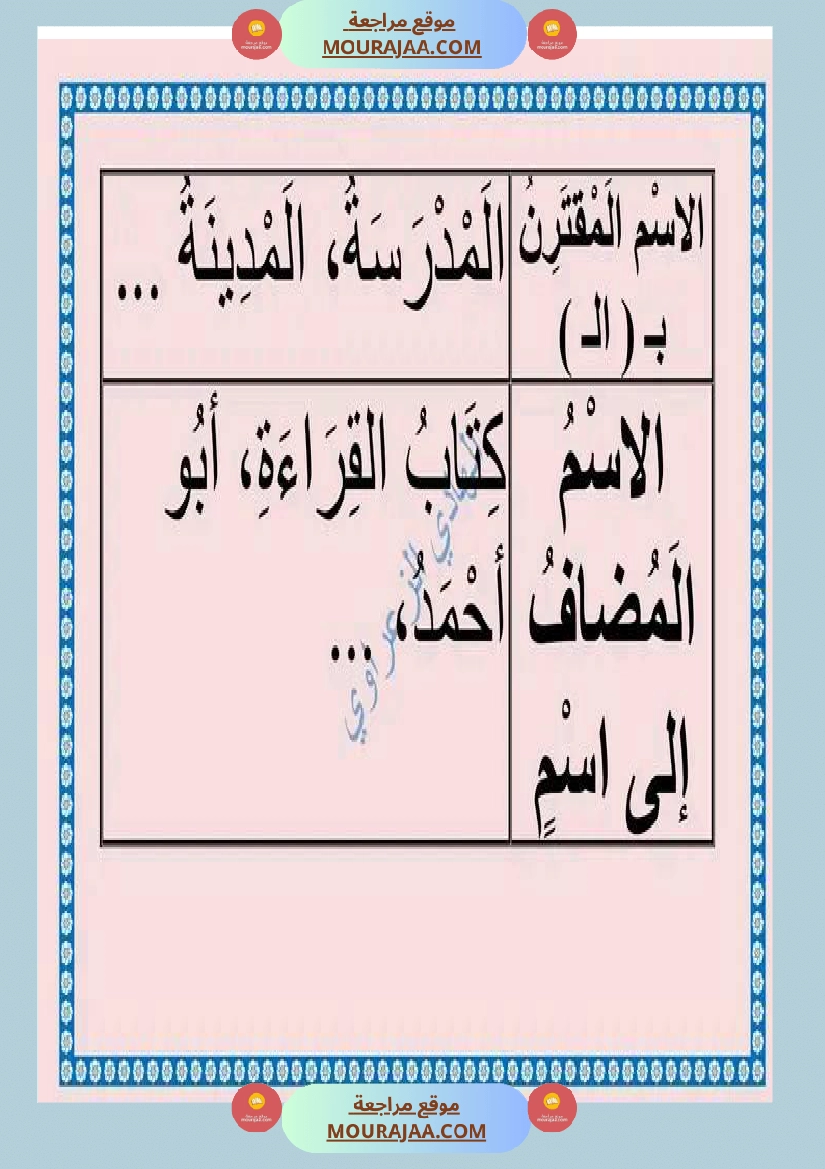 موقع مراجعة
MOURAJAA.COM
الاسْم الَمْقتَرِنُ
بـ ( الـ )
الَمْدْرَسَةُ، الَمْدِينَةُ ...
الاسْمُ
الَمُضافُ
إلى اسْمٍ
كِتَابُ القِرَاءَةِ، أبُو
أحْمَدُ، ...
موقع مراجعة
MOURAJAA.COM